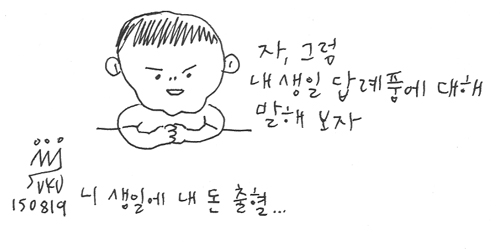 자, 그럼
내 생일 답례품에 대해
말해 보자
150819
니 생일에 내 돈 출혈...